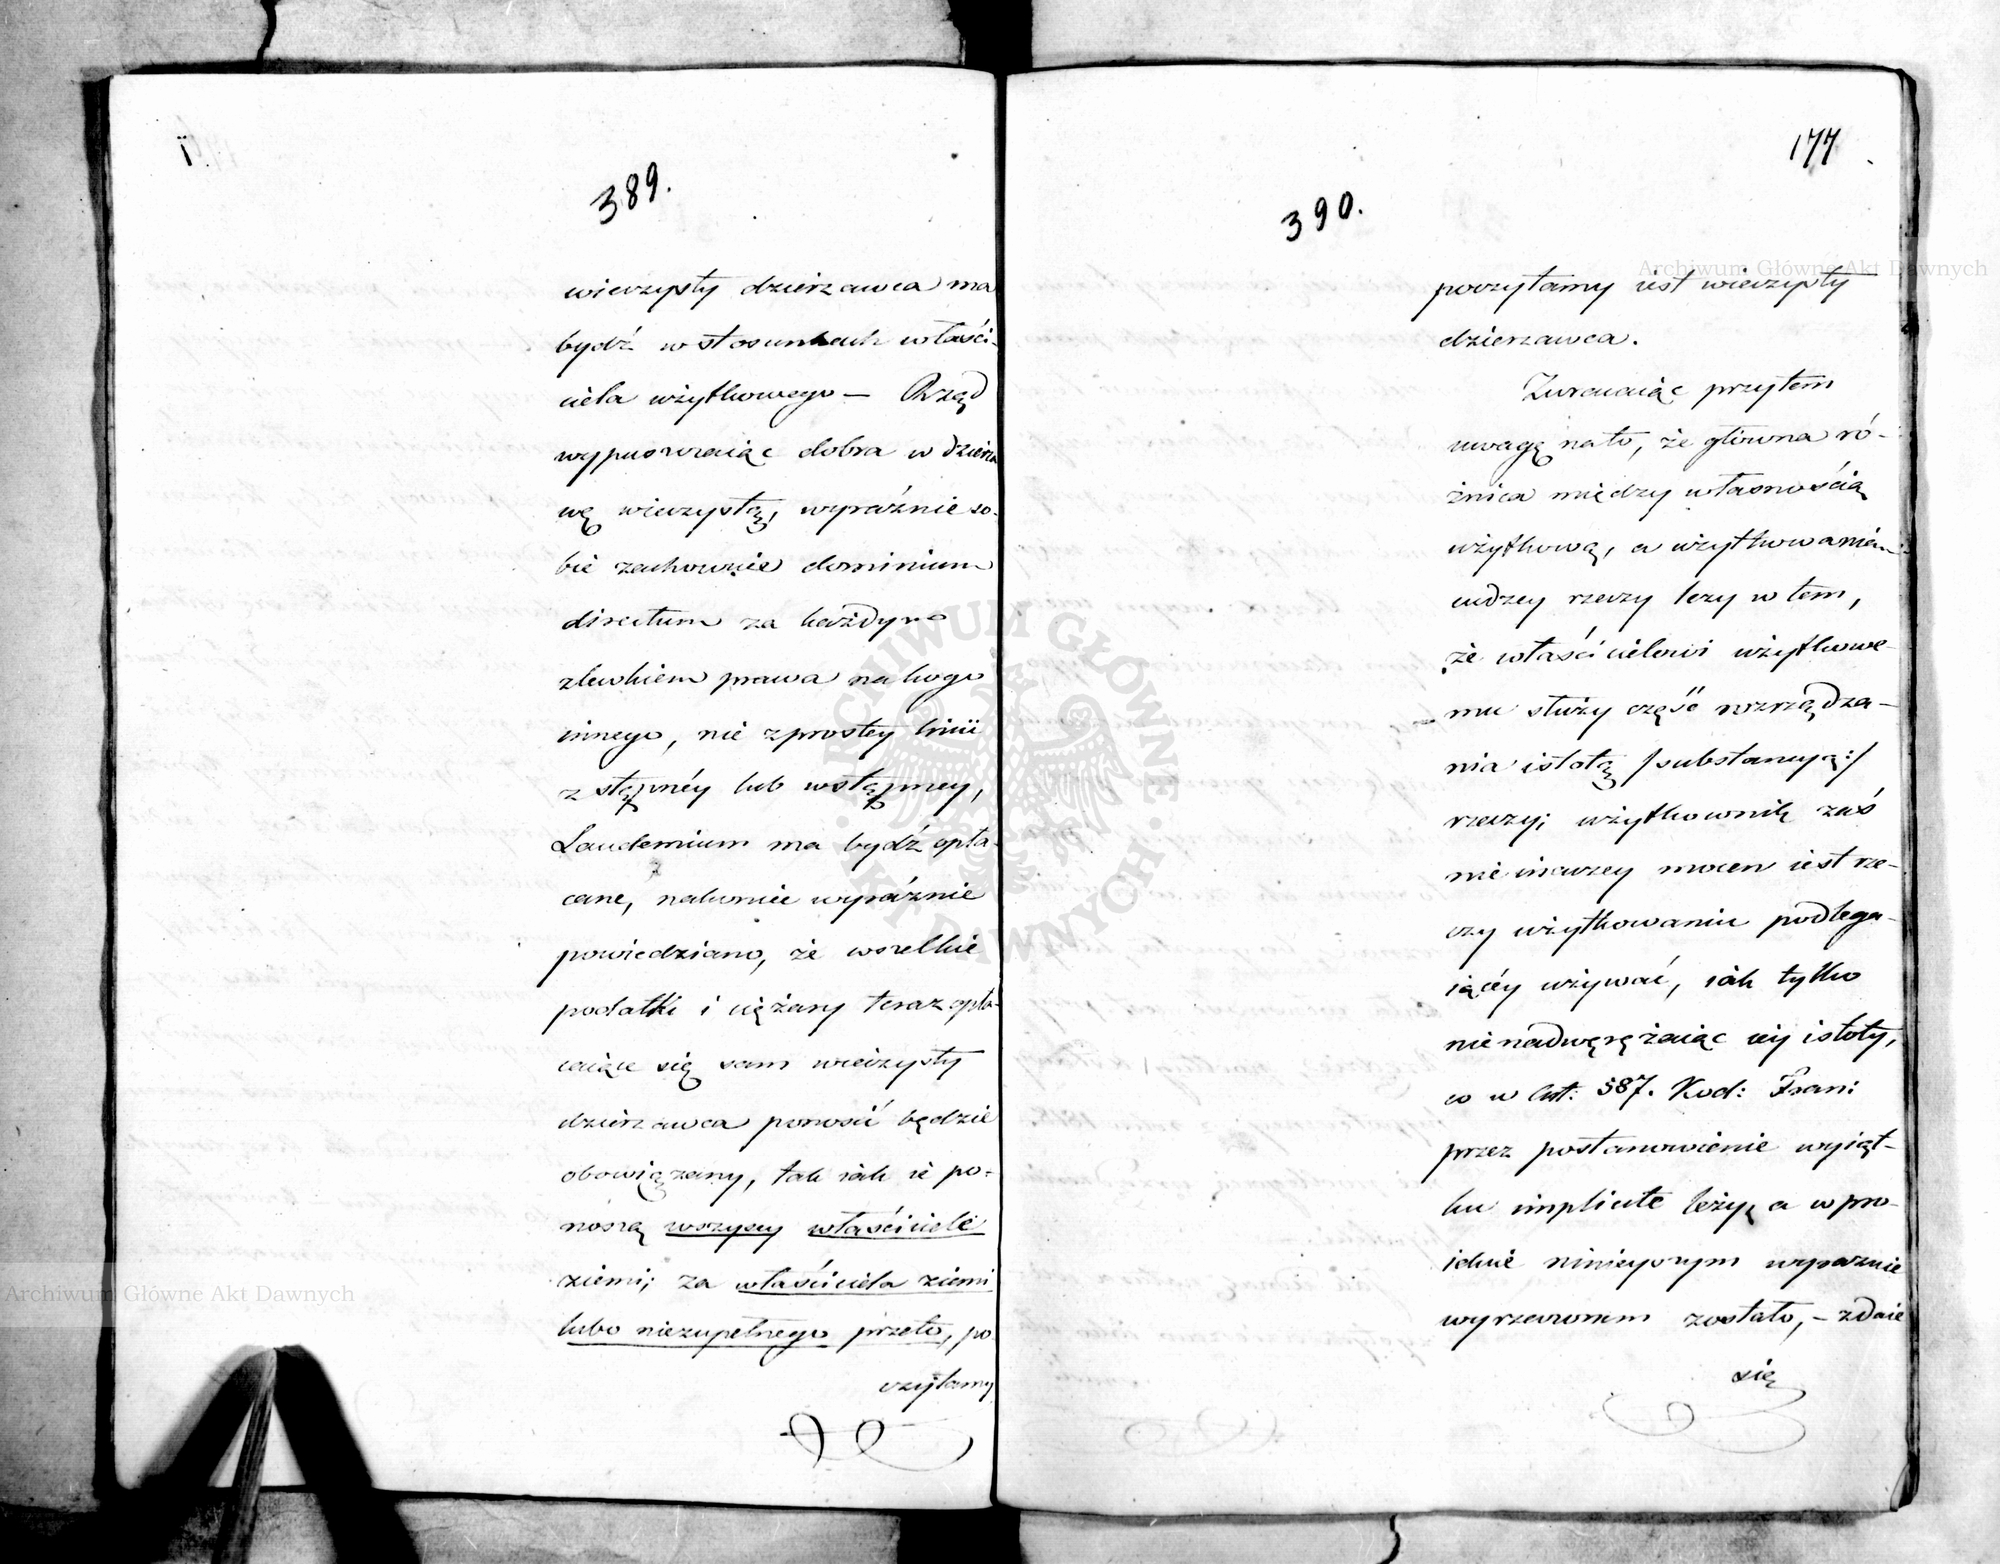 389.
wieczysty dzierzawca ma
bydź w stosunkach właści-
ciela użytkowego — Rząd
wypuszczaiąc dobra w dzierża
wę wieczystą, wyraźnie so-
bie zachowuie dominium
directum za każdym
zlewkiem prawa na kogo
innego, nie z prostey linii
zstępnéy lub wstępney,
Laudemium ma bydź opła-
cane, nakoniec wyraźnie
powiedziano, że wszelkie
podatki i ciężary teraz opła-
caiące się sam wieczysty
dzierzawca ponosić będzie
obowiązany, tak iak ie po-
noszą wszyscy właściciele
ziemi; za właściciela ziemi
lubo niezupełnego przeto, po-
czytamy
177
390.
poczytamy iest wieczysty
dzierzawca.
Zwracaiąc przytem
uwagę na to, że główna ró-
żnica między własnością
użytkową, a użytkowaniem
cudzey rzeczy leży w tem,
że właścicielowi użytkowe-
mu służy część rozrządza-
nia istotą /substancyą:/
rzeczy; użytkownik zaś
nie inaczey mocen iest rze-
czy użytkowaniu podlega-
iącéy używać, iak tylko
nienadwęrężaiąc iéy istoty,
co w Art: 587. Kod: Fran:
przez postanowienie wyiąt-
ku implicite leży, a w pro-
iekcie ninieyszym wyraznie
wyrzeczonem zostało, — zdaie
się
Archiwum Główne Akt Dawnych
Archiwum Główne Akt Dawnych
ARCHIWUM GŁÓWNE AKT DAWNYCH